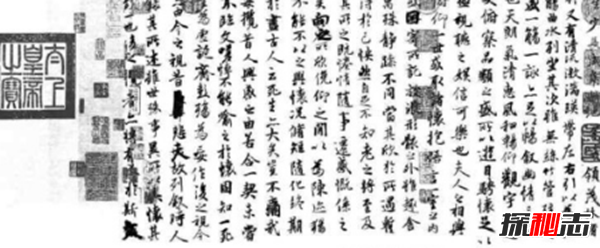 領茂林
又有清流激湍暎帶左右引
觴曲水列坐其次雖無絲竹管弦
一觴一詠亦足以暢叙幽情
也天朗氣清惠風和暢仰觀宇
俯察品類之盛所以遊目騁懷足以
視聽之娛信可樂也夫人之相與
仰一世或取諸懷抱悟言一室之內
因寄所託放浪形骸之外雖趣舍
萬殊靜躁不同當其欣於所遇
得於己怏然自足不知老之將至及
其所之既惓情隨事遷感慨係之
矣向之所欣俛仰之閒以為陳迹
猶不能不以之興懷況脩短隨化終期
於盡古人云死生亦大矣豈不痛哉
每攬昔人興感之由若合一契未嘗
不臨文嗟悼不能喻之於懷固知一死
生為虛誕齊彭殤為妄作後之視今
亦由今之視昔悲夫故列叙時人
錄其所述雖世殊事異所以興懷其
致一也後之攬者亦將有感於斯
太上皇帝之寶
探秘志